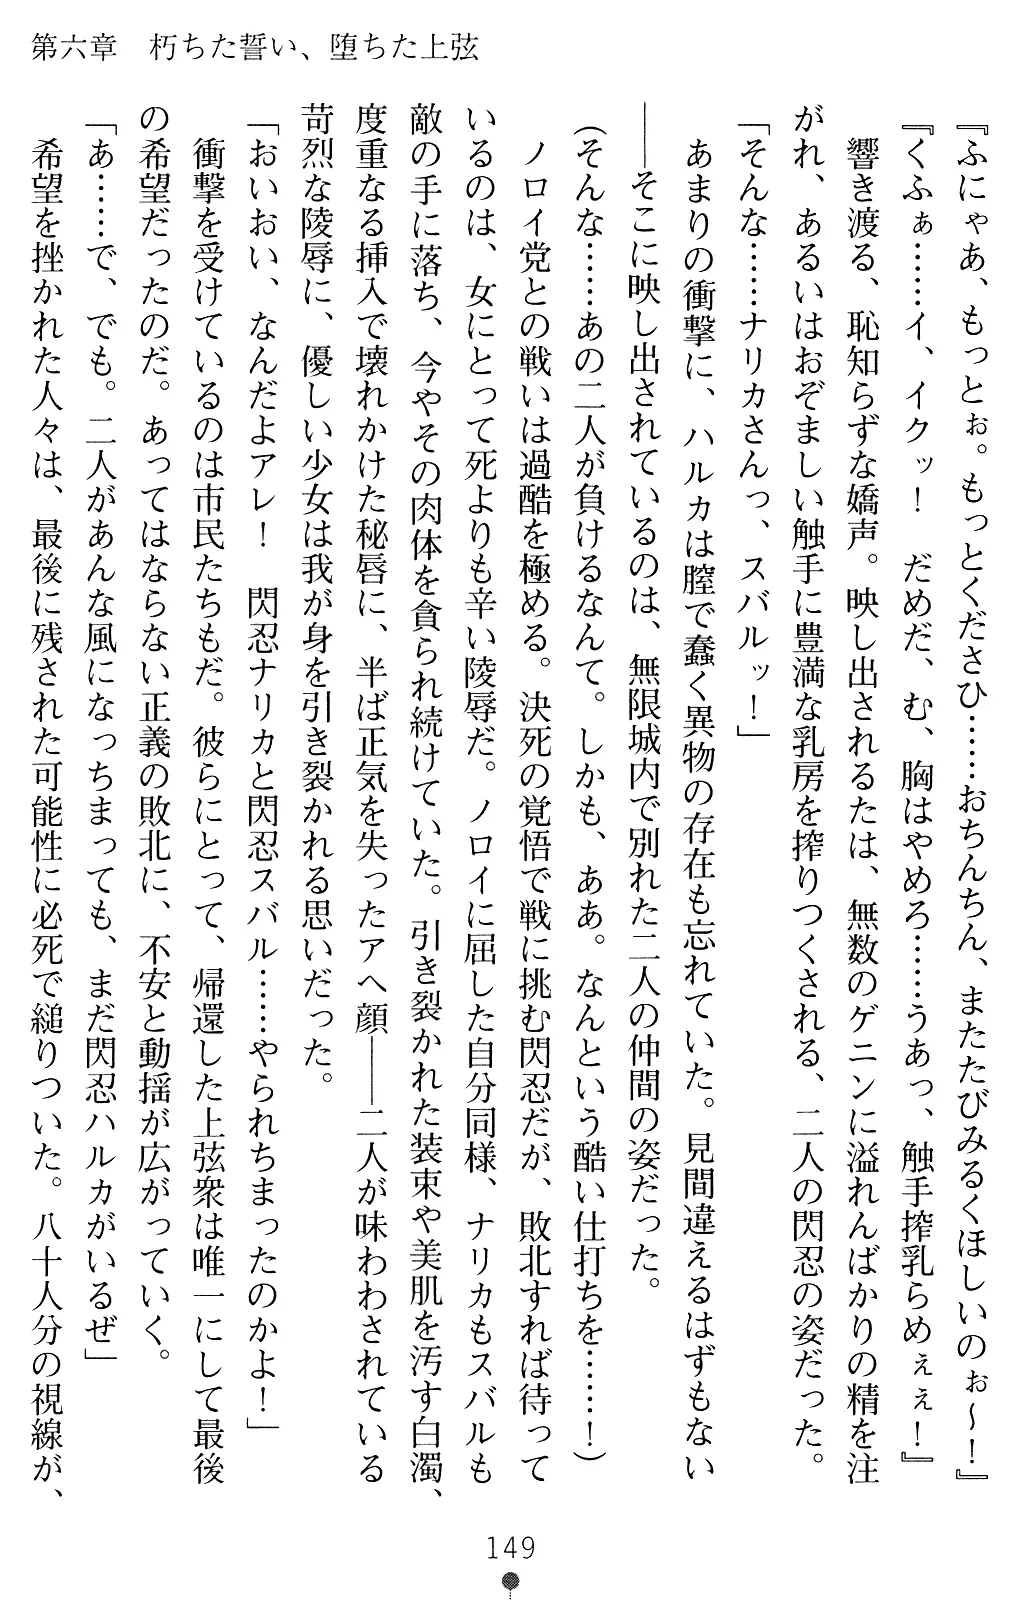 第六章　朽ちた誓い、堕ちた上弦
『ふにゃあ、もっとぉ。もっとくださひ……おちんちん、またたびみるくほしいのぉ～！』
『くふぁ……イ、イクッ！　だめだ、む、胸はやめろ……うあっ、触手搾乳らめぇぇ！』
響き渡る、恥知らずな嬌声。映し出されるたは、無数のゲニンに溢れんばかりの精を注
がれ、あるいはおぞましい触手に豊満な乳房を搾りつくされる、二人の閃忍の姿だった。
「そんな……ナリカさんっ、スバルッ！」
あまりの衝撃に、ハルカは膣で蠢く異物の存在も忘れていた。見間違えるはずもない
――そこに映し出されているのは、無限城内で別れた二人の仲間の姿だった。
（そんな……あの二人が負けるなんて。しかも、ああ。なんという酷い仕打ちを……！）
ノロイ党との戦いは過酷を極める。決死の覚悟で戦に挑む閃忍だが、敗北すれば待って
いるのは、女にとって死よりも辛い陵辱だ。ノロイに屈した自分同様、ナリカもスバルも
敵の手に落ち、今やその肉体を貪られ続けていた。引き裂かれた装束や美肌を汚す白濁、
度重なる挿入で壊れかけた秘唇に、半ば正気を失ったアヘ顔――二人が味わわされている
苛烈な陵辱に、優しい少女は我が身を引き裂かれる思いだった。
「おいおい、なんだよアレ！　閃忍ナリカと閃忍スバル……やられちまったのかよ！」
衝撃を受けているのは市民たちもだ。彼らにとって、帰還した上弦衆は唯一にして最後
の希望だったのだ。あってはならない正義の敗北に、不安と動揺が広がっていく。
「あ……で、でも。二人があんな風になっちまっても、まだ閃忍ハルカがいるぜ」
希望を挫かれた人々は、最後に残された可能性に必死で縋りついた。八十人分の視線が、
149